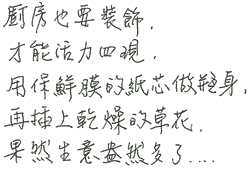 廚房也要裝飾,
才能活力四現,
用保鮮膜的紙芯做瓶身,
再插上乾燥的草花,
果然生意盎然多了....